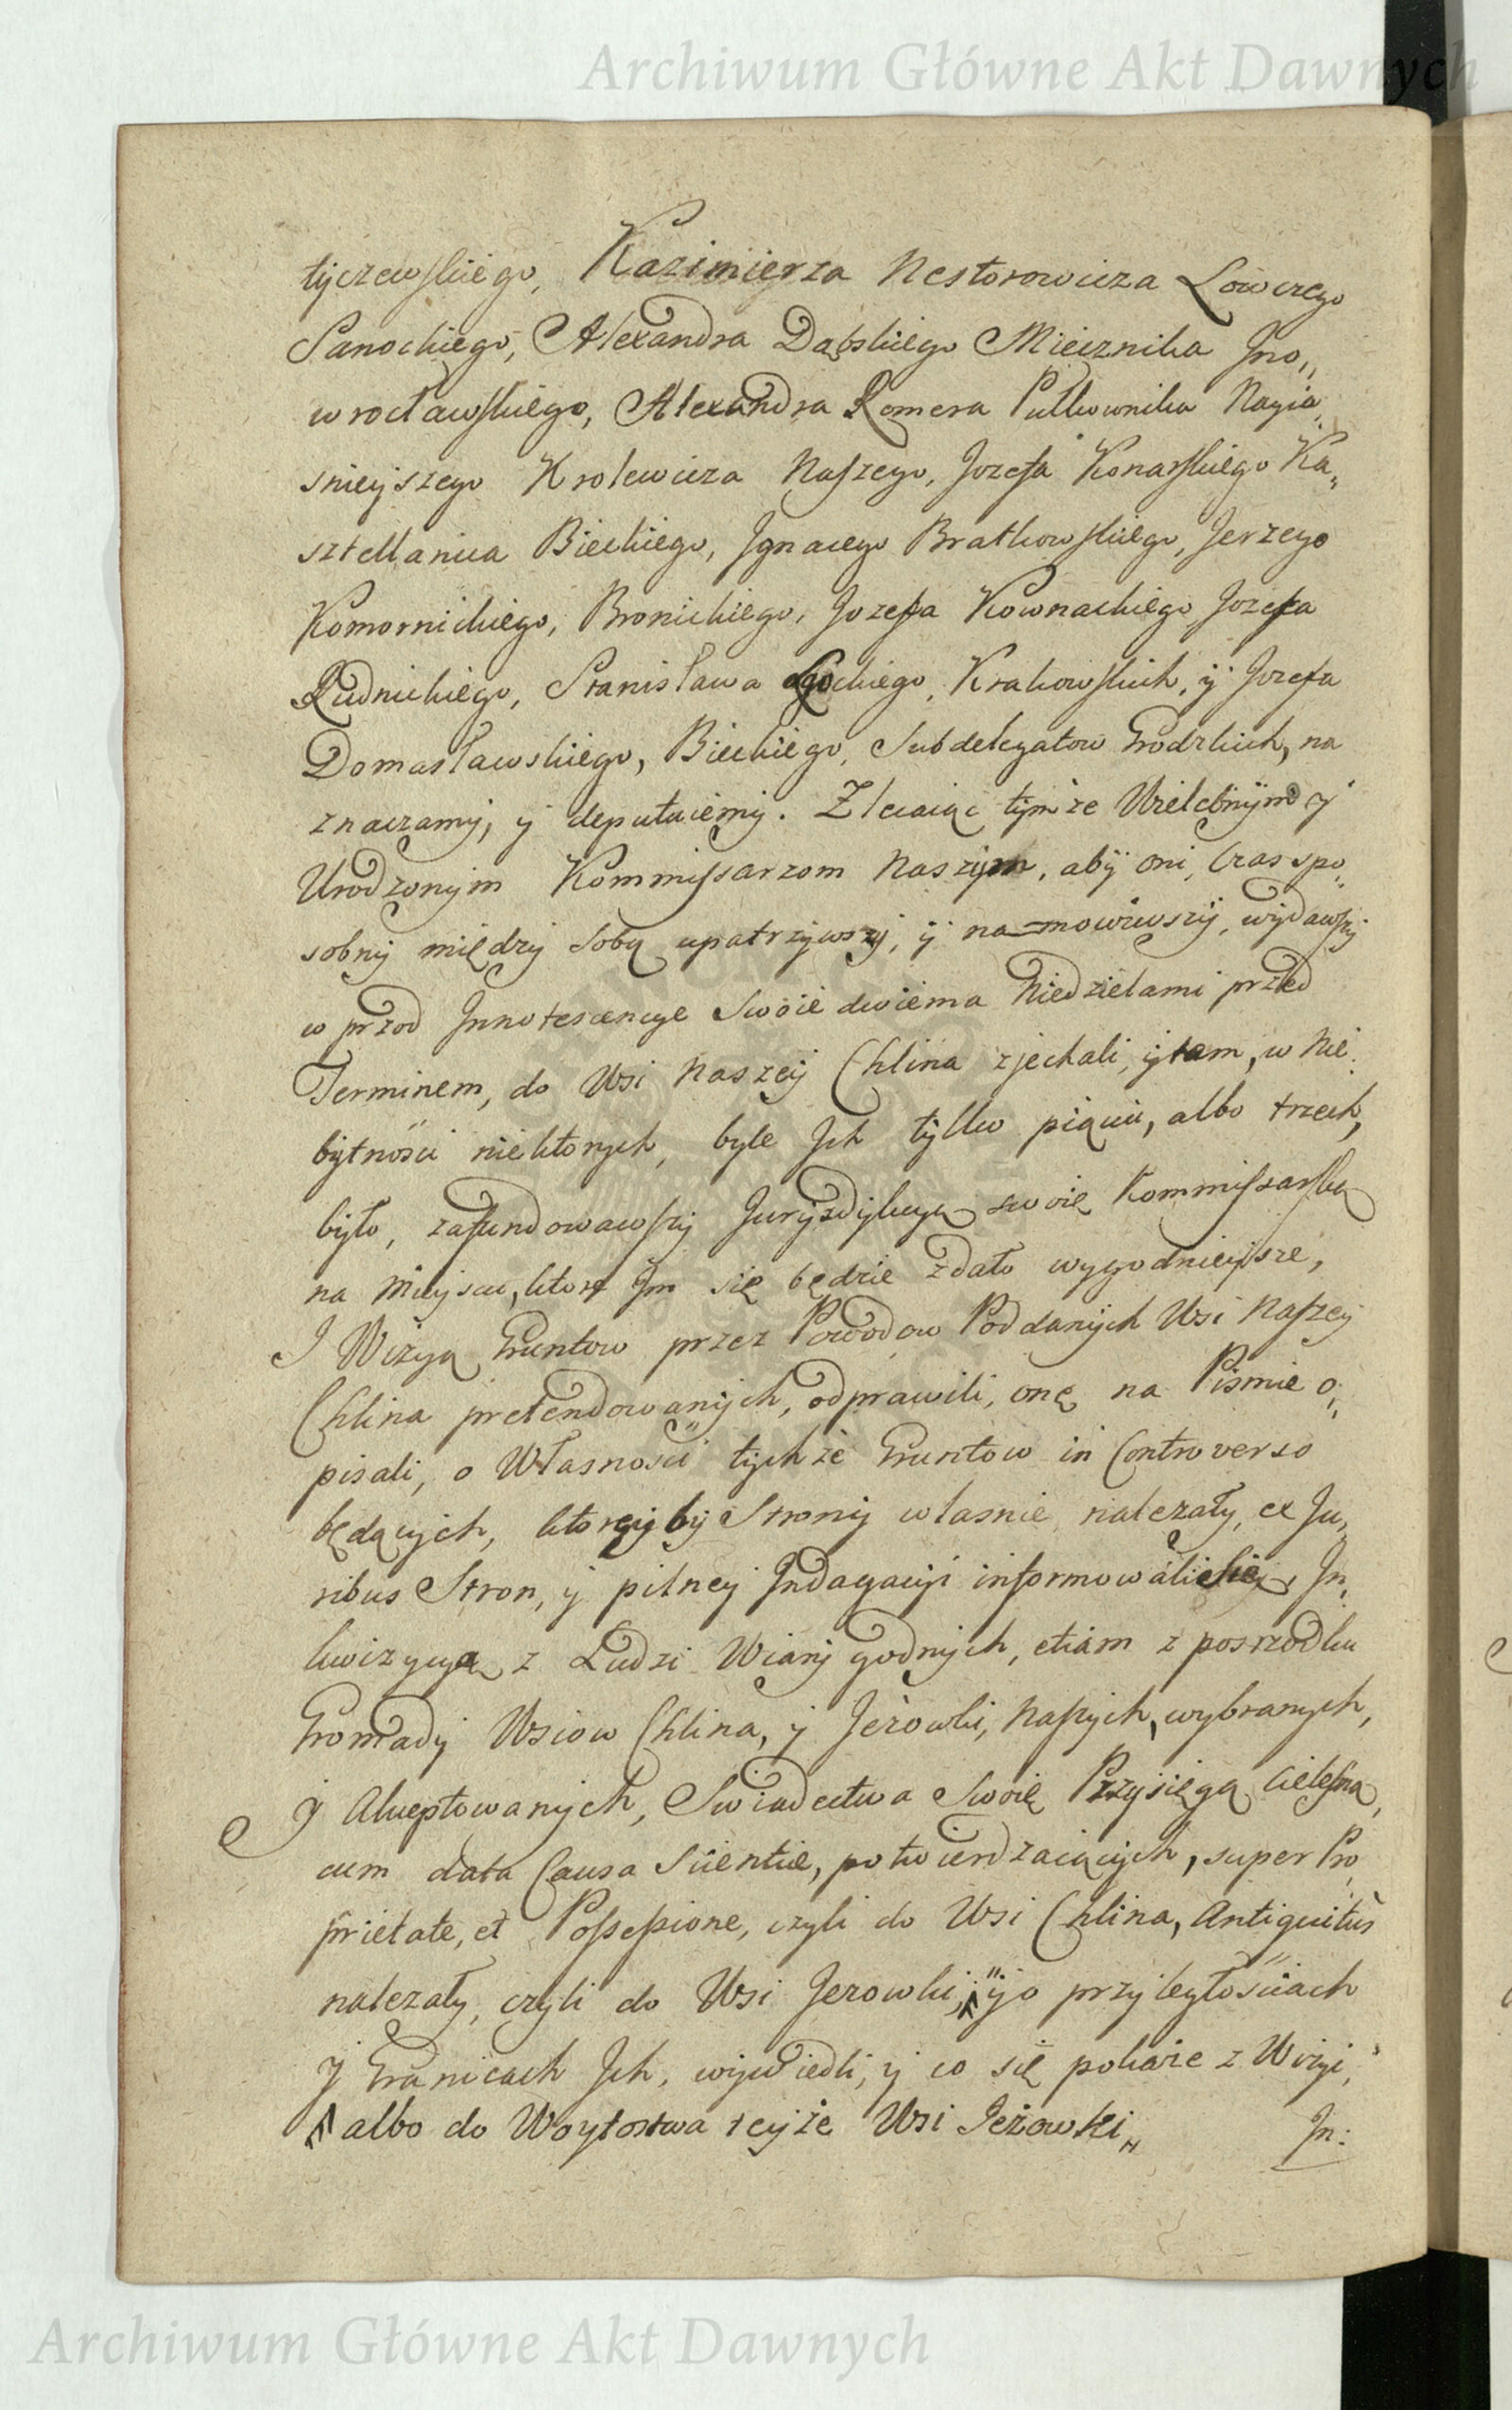 Archiwum Główne Akt Dawnych
tyczewskiego, Kazimierza Nestorowicza Łowczego
Sanockiego, Alexandra Dąbskiego Miecznika Jno„
wrocławskiego, Alexandra Romera Pułkownika Nayia„
snieyszego Krolewicza Naszego, Jozefa Konarskiego Ka„
sztellanica Bieckiego, Jgnacego Bratkowskiego, Jerzego
Komornickiego, Bronickiego, Jozefa Kownackiego, Jozefa
Rudnickiego, Stanisława Łgockiego, Krakowskich, ÿ Jozefa
Domasławskiego, Bieckiego, Subdelegatow Grodzkich, na
znaczamy, y deputuiemy. Zlecaiąc tymże Wielebnym y
Urodzonym Kommissarzom Naszym, aby oni, Czas spo„
sobny między sobą upatrzywszy, ÿ na=mowiwszy, wydawszy
w przod Jnnotescencye Swoie dwiema Niedzielami przed
Terminem, do Wsi Naszey Chlina zjechali, ÿ tam, w nie„
bytności niektorych, byle Jch tylko pięciu, albo trzech,
było, zafundowawszy Juryzdykcyą swoię Kommissarską
na Mieyscu, ktore Jm się będzie zdało wygodnieysze,
J Wizyą Gruntow przez Powodow Poddanych Wsi Naszey
Chlina pretendowanych, odprawili, onę na Pismie o„
pisali, o Własności tychże Gruntow in Controverso
będących, ktoreyby Strony własnie należały, ex Ju„
ribus Stron, y pilney Jndagacyi informowali się, Jn„
kwizycyą z Ludzi Wiary godnych, etiam z poszrodku
Gromady Wsiow Chlina, y Jeżowki, Naszych, wybranych,
y Akceptowanych, Swiadectwa Swoię Przysięgą cielesną,
cum data Causa Scientiæ, potwierdzaiących, super Pro„
prietate, et Possessione, czyli do Wsi Chlina, Antiquitùs
należały, czyli do Wsi Jezowki, ÿ o przyległościach
y Granicach Jch, wywiedli, y co się pokaże z Wizyi,
albo do Woytostwa teyże Wsi Jeżowki„
Jn:
Archiwum Główne Akt Dawnych